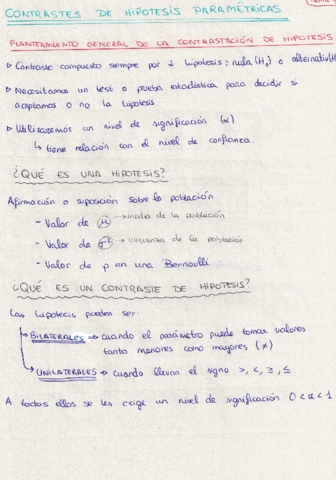 CONTRASTES DE HIPOTESIS PARAMÉTRICAS
PLANTEAMIENTO GENERAL DE LA CONTRASTACIÓN DE HIPOTESIS
▷ Contraste compuesto siempre por 2 hipotesis: nula (H₀) o alternativa (H
▷ Necesitamos un test o prueba estadística para decidir si
aceptamos o no la hipotesis
▷ Utilizaremos un nivel de significación (α)
↳ tiene relación con el nivel de confianza.
¿QUÉ ES UNA HIPOTESIS?
Afirmación o suposición sobre la población
- Valor de μ → media de la población
- Valor de σ² → varianza de la población
- Valor de p en una Bernoulli
¿QUÉ ES UN CONTRASTE DE HIPOTESIS?
Las hipotesis pueden ser:
→ BILATERALES → cuando el parámetro puede tomar valores
tanto menores como mayores (≠)
→ UNILATERALES → cuando llevan el signo >, <, ≥, ≤
A todas ellas se les exige un nivel de significación 0 < α < 1